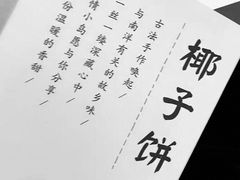 椰子饼
古法手作唤起/
与南洋有关的故乡味/
一丝一缕深藏心中/
情小岛愿与你分享/
份温暖的香甜/